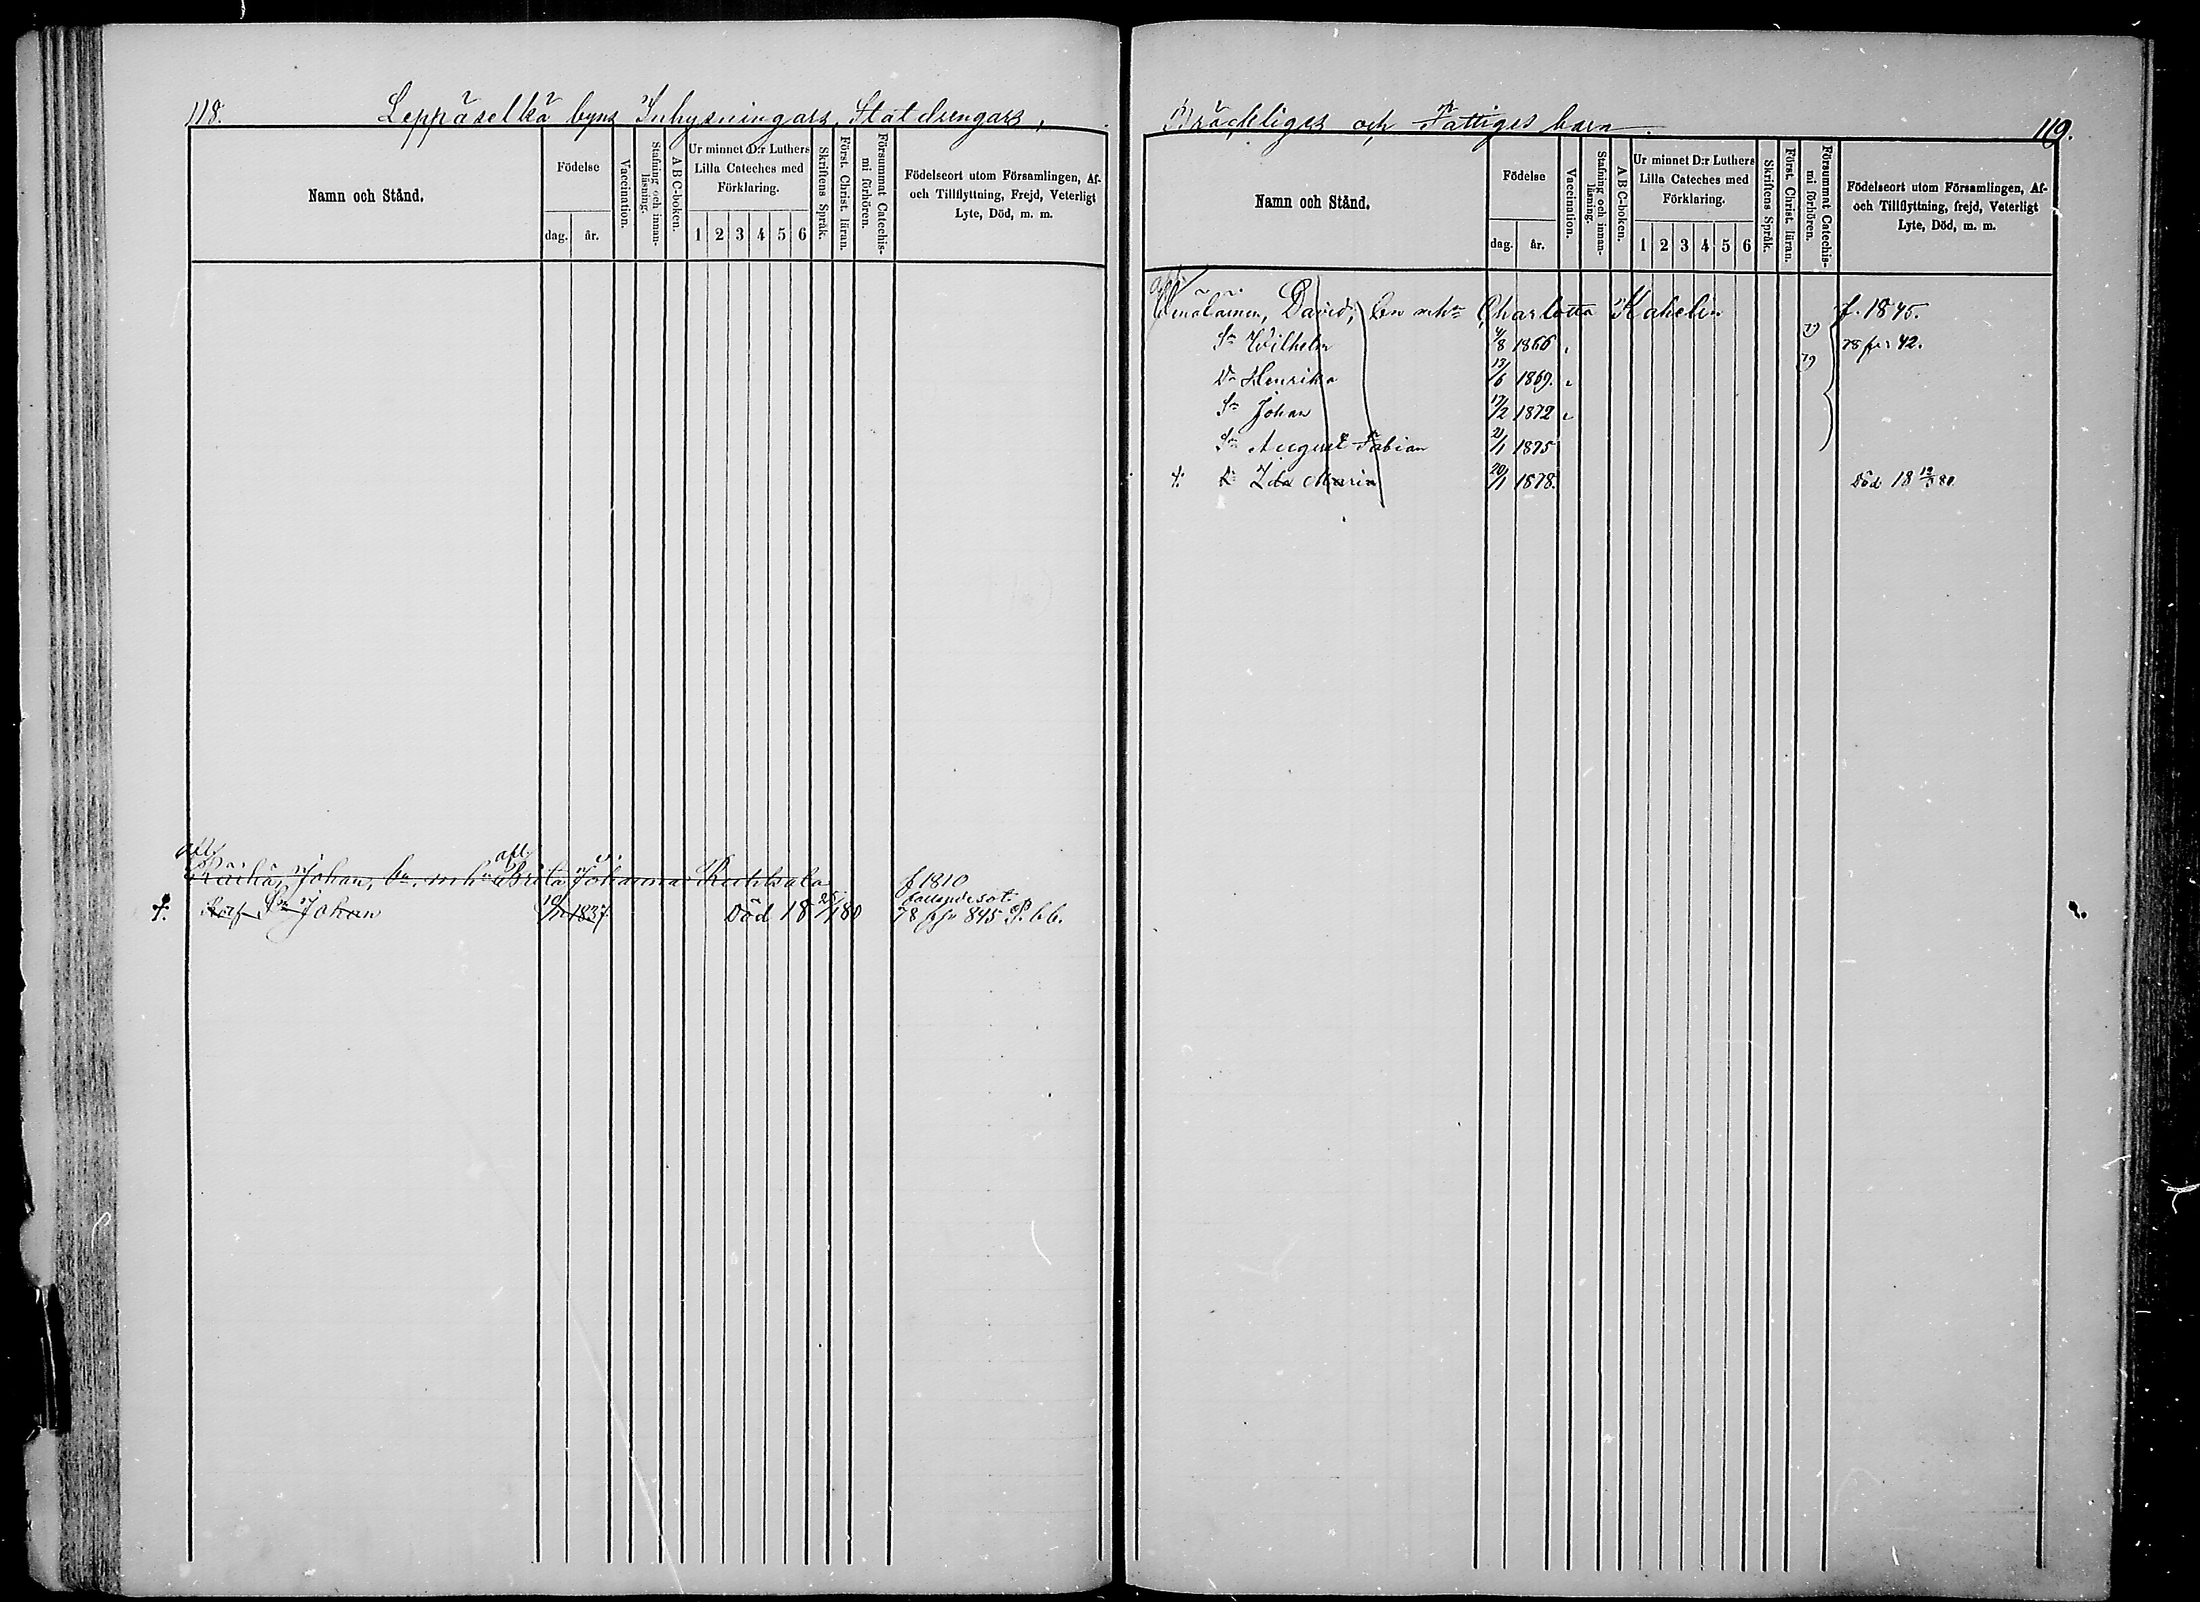 118.
Leppäselkä byns Inhysningars, Statdrengars,
Namn och Stånd.
Födelse
dag.
år.
Vaccination.
Stafning och innanläsning.
ABC-boken.
Ur minnet D:r Luthers
Lilla Cateches med
Förklaring.
1 2 3 4 5 6
Skriftens Språk.
Först. Christ. läran.
Försummat Catechismi förhören.
Födelseort utom Församlingen, Af-
och Tillflyttning, Frejd, Veterligt
Lyte, Död, m. m.
afl. afl.
Räihä, Johan, bn. m. h. Brita Johanna
f 1810
Johan 1837. Död 18 25/1 80
78 845
Bräckliges och Fattiges barn.
119.
Namn och Stånd.
Födelse
dag.
år.
Vaccination.
Stafning och innanläsning.
ABC-boken.
Ur minnet D:r Luthers
Lilla Cateches med
Förklaring.
1 2 3 4 5 6
Skriftens Språk.
Först. Christ. läran.
Försummat Catechismi förhören.
Födelseort utom Församlingen, Af-
och Tillflyttning, frejd, Veterligt
Lyte, Död, m. m.
David, Charlotta Kahelin f. 1845.
Sn Wilhelm 4/8 1866 78 42.
Dr Henrika 13/6 1869.
Sn Johan 17/2 1872
Sn August Fabian 21/1 1875
Dr Ida Maria 20/1 1878. Död 18 80